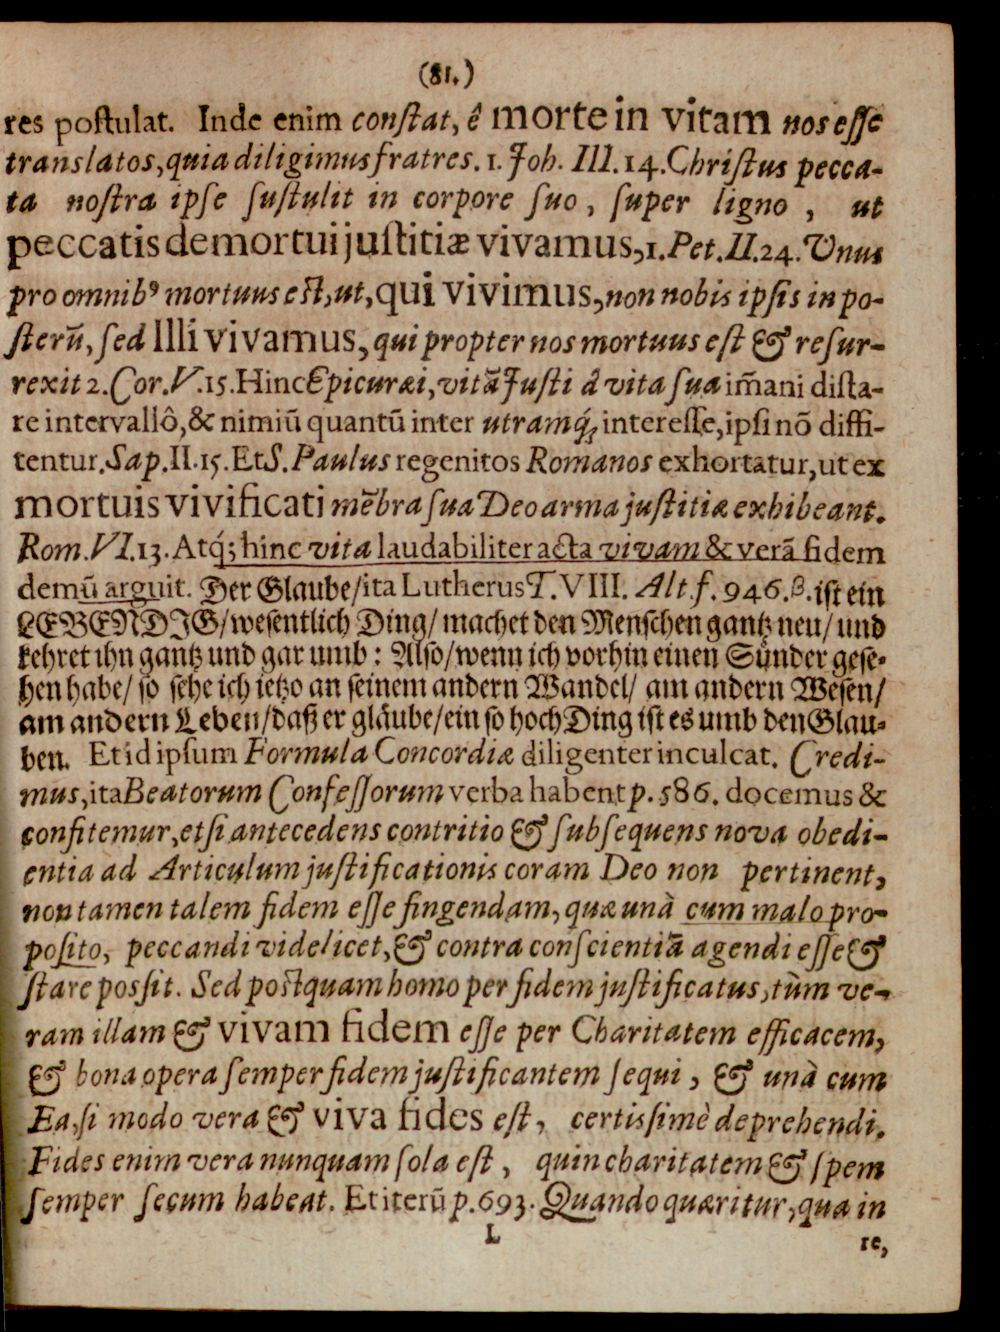 (81.)
res poſtulat. Inde enim conſtat, ê morte in vitam nos eſſe
translatos, quia diligimus fratres. 1. Joh. III. 14. Chriſtus pecca-
ta noſtra ipſe ſuſtulit in corpore ſuo, ſuper ligno, ut
peccatis demortui juſtitiæ vivamus, 1. Pet. II. 24. Unus
pro omnib⁹ mortuus eſt, ut, qui vivimus, non nobis ipſis in po-
ſterū, ſed Illi vivamus, qui propter nos mortuus eſt & reſur-
rexit 2. Cor. V. 15. Hinc Epicuræi, vitā Juſti â vita ſua im̄ani diſta-
re intervallô, & nimiū quantū inter utramq́; intereſſe, ipſi nō diffi-
tentur. Sap. II. 15. Et S. Paulus regenitos Romanos exhortatur, ut ex
mortuis vivificati mēbra ſua Deo arma juſtitiæ exhibeant.
Rom. VI. 13. Atq́; hinc vita laudabiliter acta vivam & verā fidem
demū arguit. Der Glaube/ ita Lutherus T. VIII. Alt f. 946. β. iſt ein
LEBENDIG/ weſentlich Ding/ machet den Menſchen gantz neu/ und
kehret ihn gantz und gar umb: Alſo/ wenn ich vorhin einen Sünder geſe-
hen habe/ ſo ſehe ich ietzo an ſeinem andern Wandel/ am andern Weſen/
am andern Leben/ daß er gläube/ ein ſo hoch Ding iſt es umb den Glau-
ben. Et id ipſum Formula Concordiæ diligenter inculcat. Credi-
mus, ita Beatorum Confeſſorum verba habent p. 586. docemus &
confitemur, etſi antecedens contritio & ſubſequens nova obedi-
entia ad Articulum juſtificationis coram Deo non pertinent,
non tamen talem fidem eſſe fingendam, quæ unà cum malo pro-
poſito, peccandi videlicet, & contra conſcientiā agendi eſſe &
ſtare poſſit. Sed poſtquam homo per fidem juſtificatus, tùm ve-
ram illam & vivam fidem eſſe per Charitatem efficacem,
& bona opera ſemper fidem juſtificantem ſequi, & unà cum
Ea, ſi modo vera & viva fides eſt, certiſſimè deprehendi.
Fides enim vera nunquam ſola eſt, quin charitatem & ſpem
ſemper ſecum habeat. Et iterū p. 693. Quando quæritur, qua in
L
re,